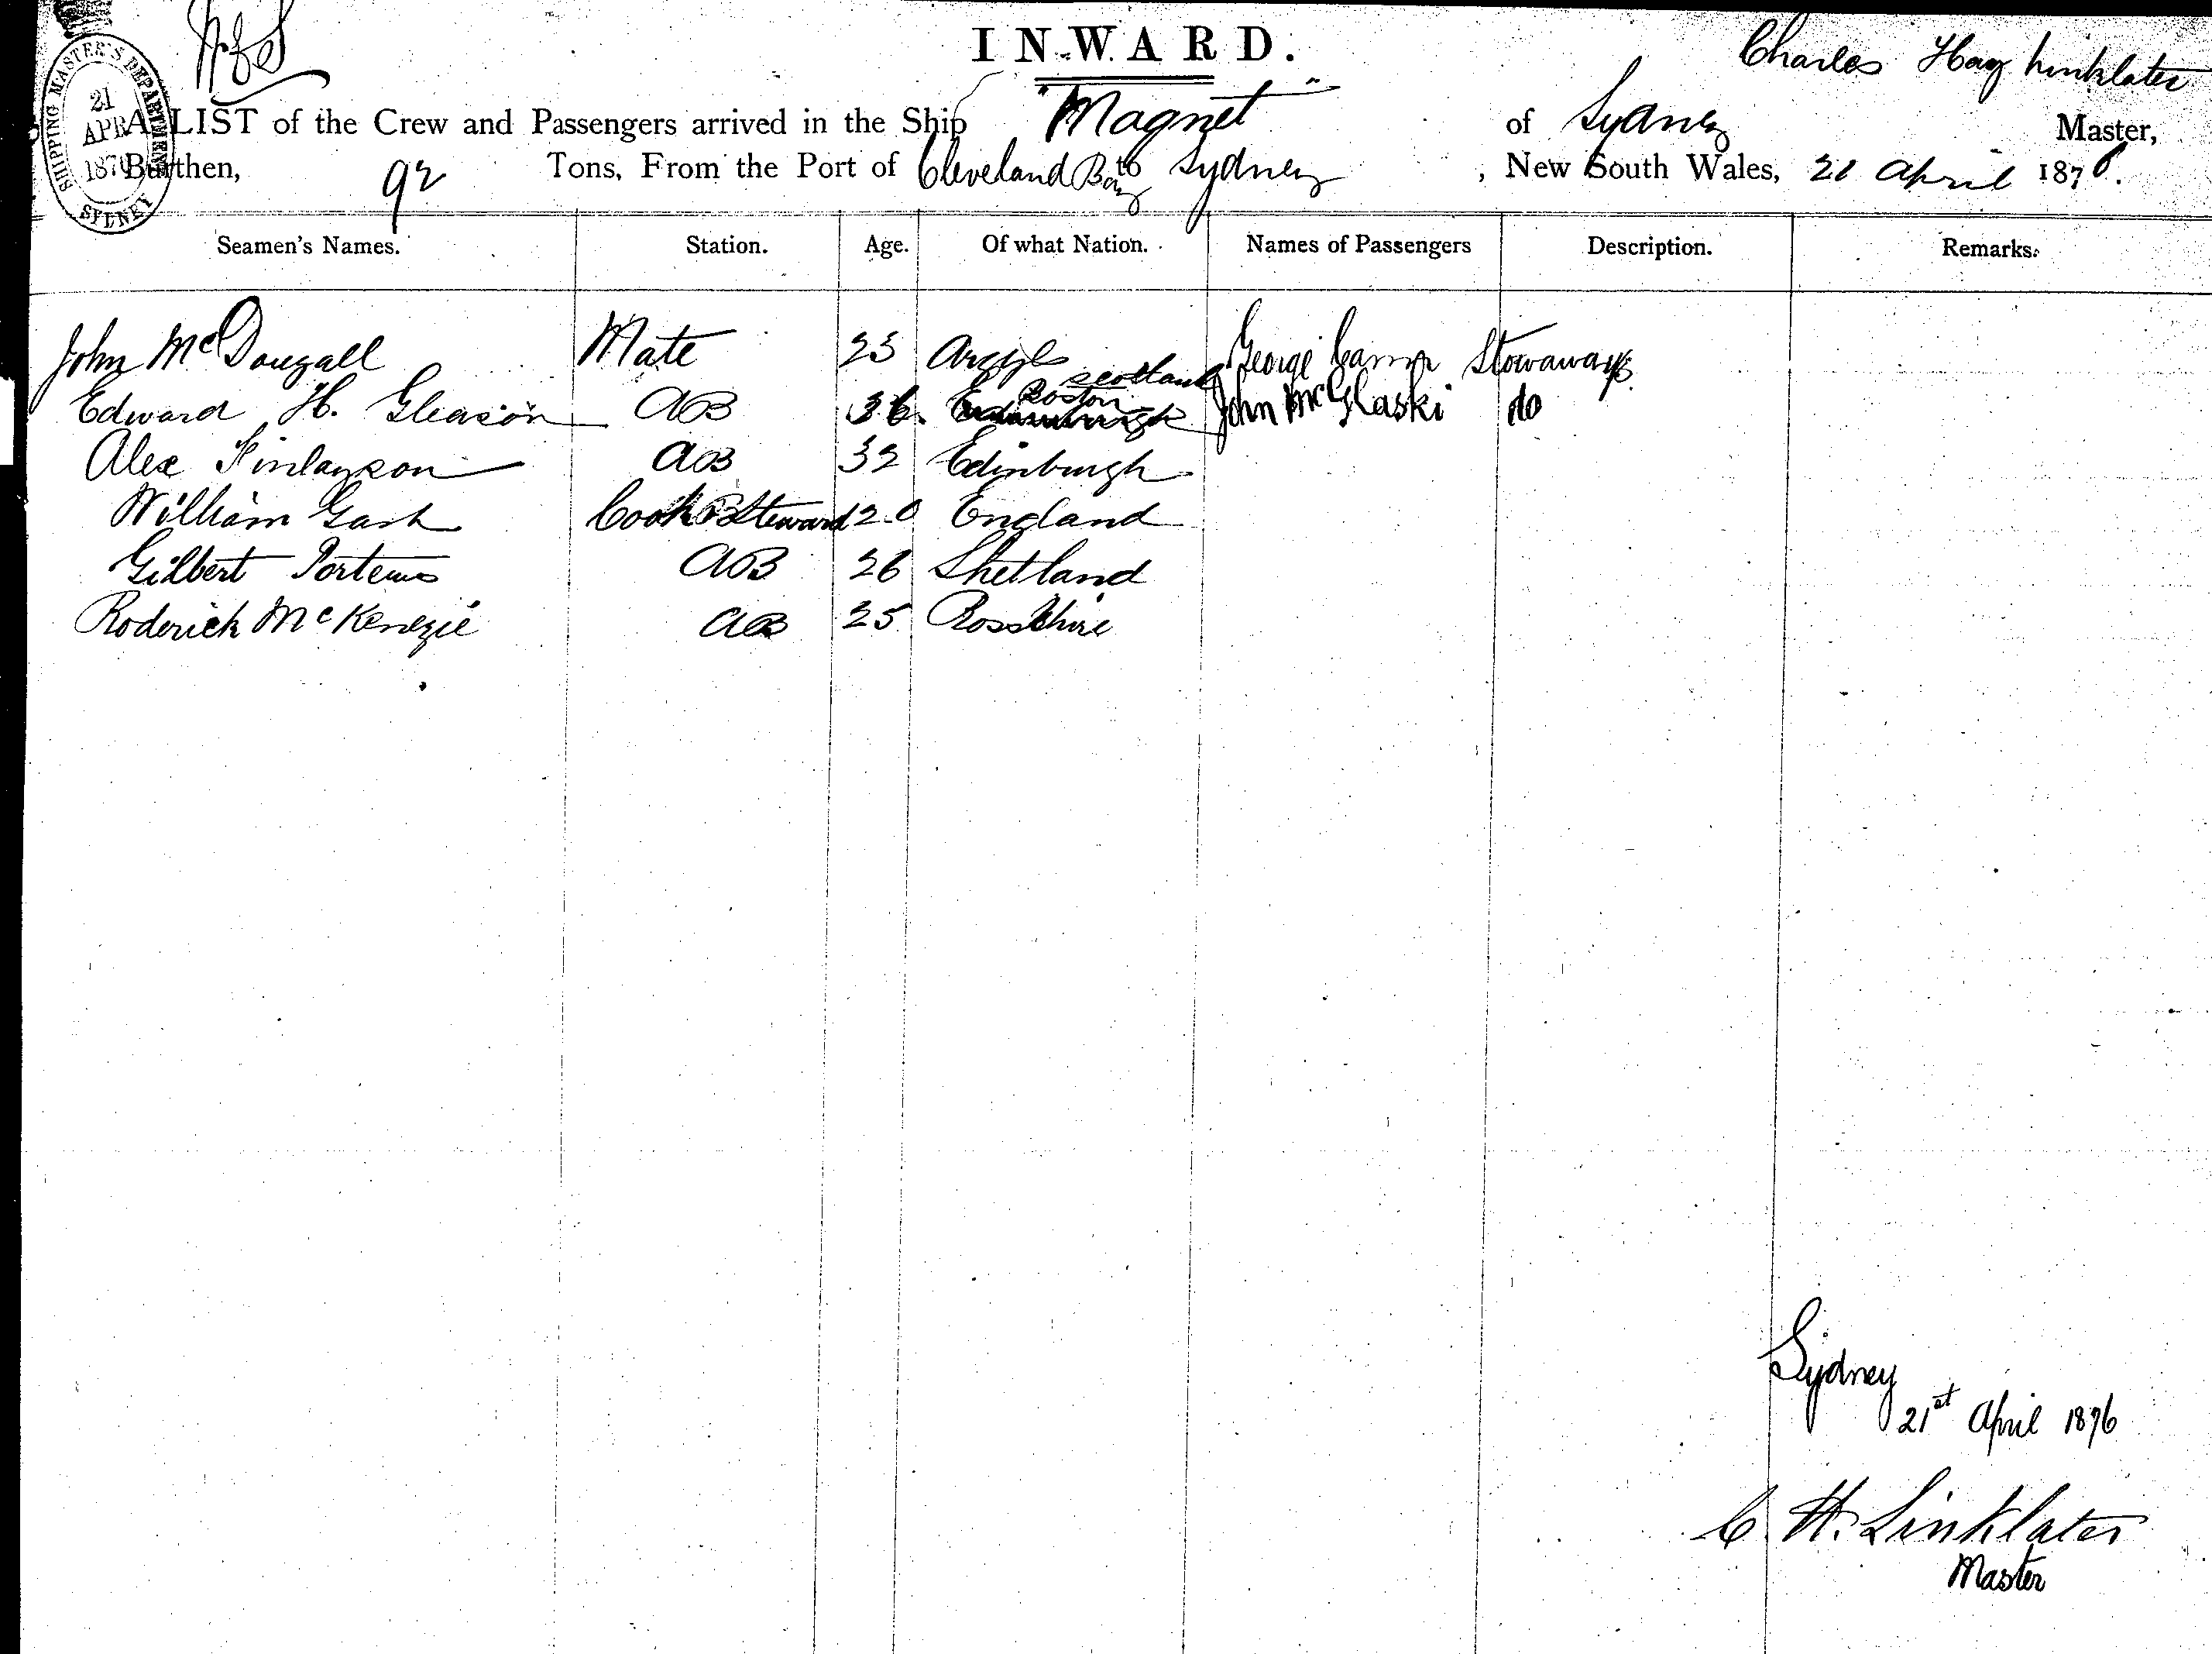 INWARD.
Charles Hay Linklater
SHIPPING MASTER'S DEPARTMENT
21
APR
1876
SYDNEY
A LIST of the Crew and Passengers arrived in the Ship "Magnet" of Sydney Master,
Burthen, 92 Tons, From the Port of Cleveland Bay to Sydney, New South Wales, 21 April 1876.
Seamen's Names. Station. Age. Of what Nation. Names of Passengers Description. Remarks.
John McDougall Mate 23 Argyle Scotland George Stowaways
Edward H. Gleason AB 36. Boston John McGlaski do
Alex Finlayson AB 32 Edinburgh
William Gash Cook & Steward 20 England
Gilbert Porteus AB 26 Shetland
Roderick McKenzie AB 25 Rosshire
Sydney
21st April 1876
C. H. Linklater
Master